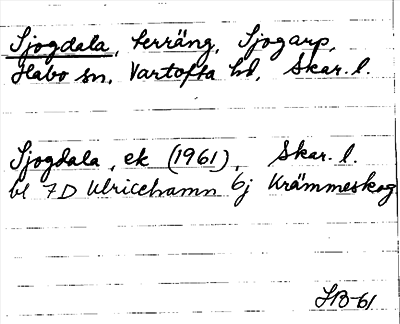 Sjogdala, terräng, Sjogarp,
Habo sn, Vartofta hd, Skar. l.
Sjogdala, ek (1961), Skar. l.
bl 7D Ulricehamn 6j Krämmeskog
HB-61